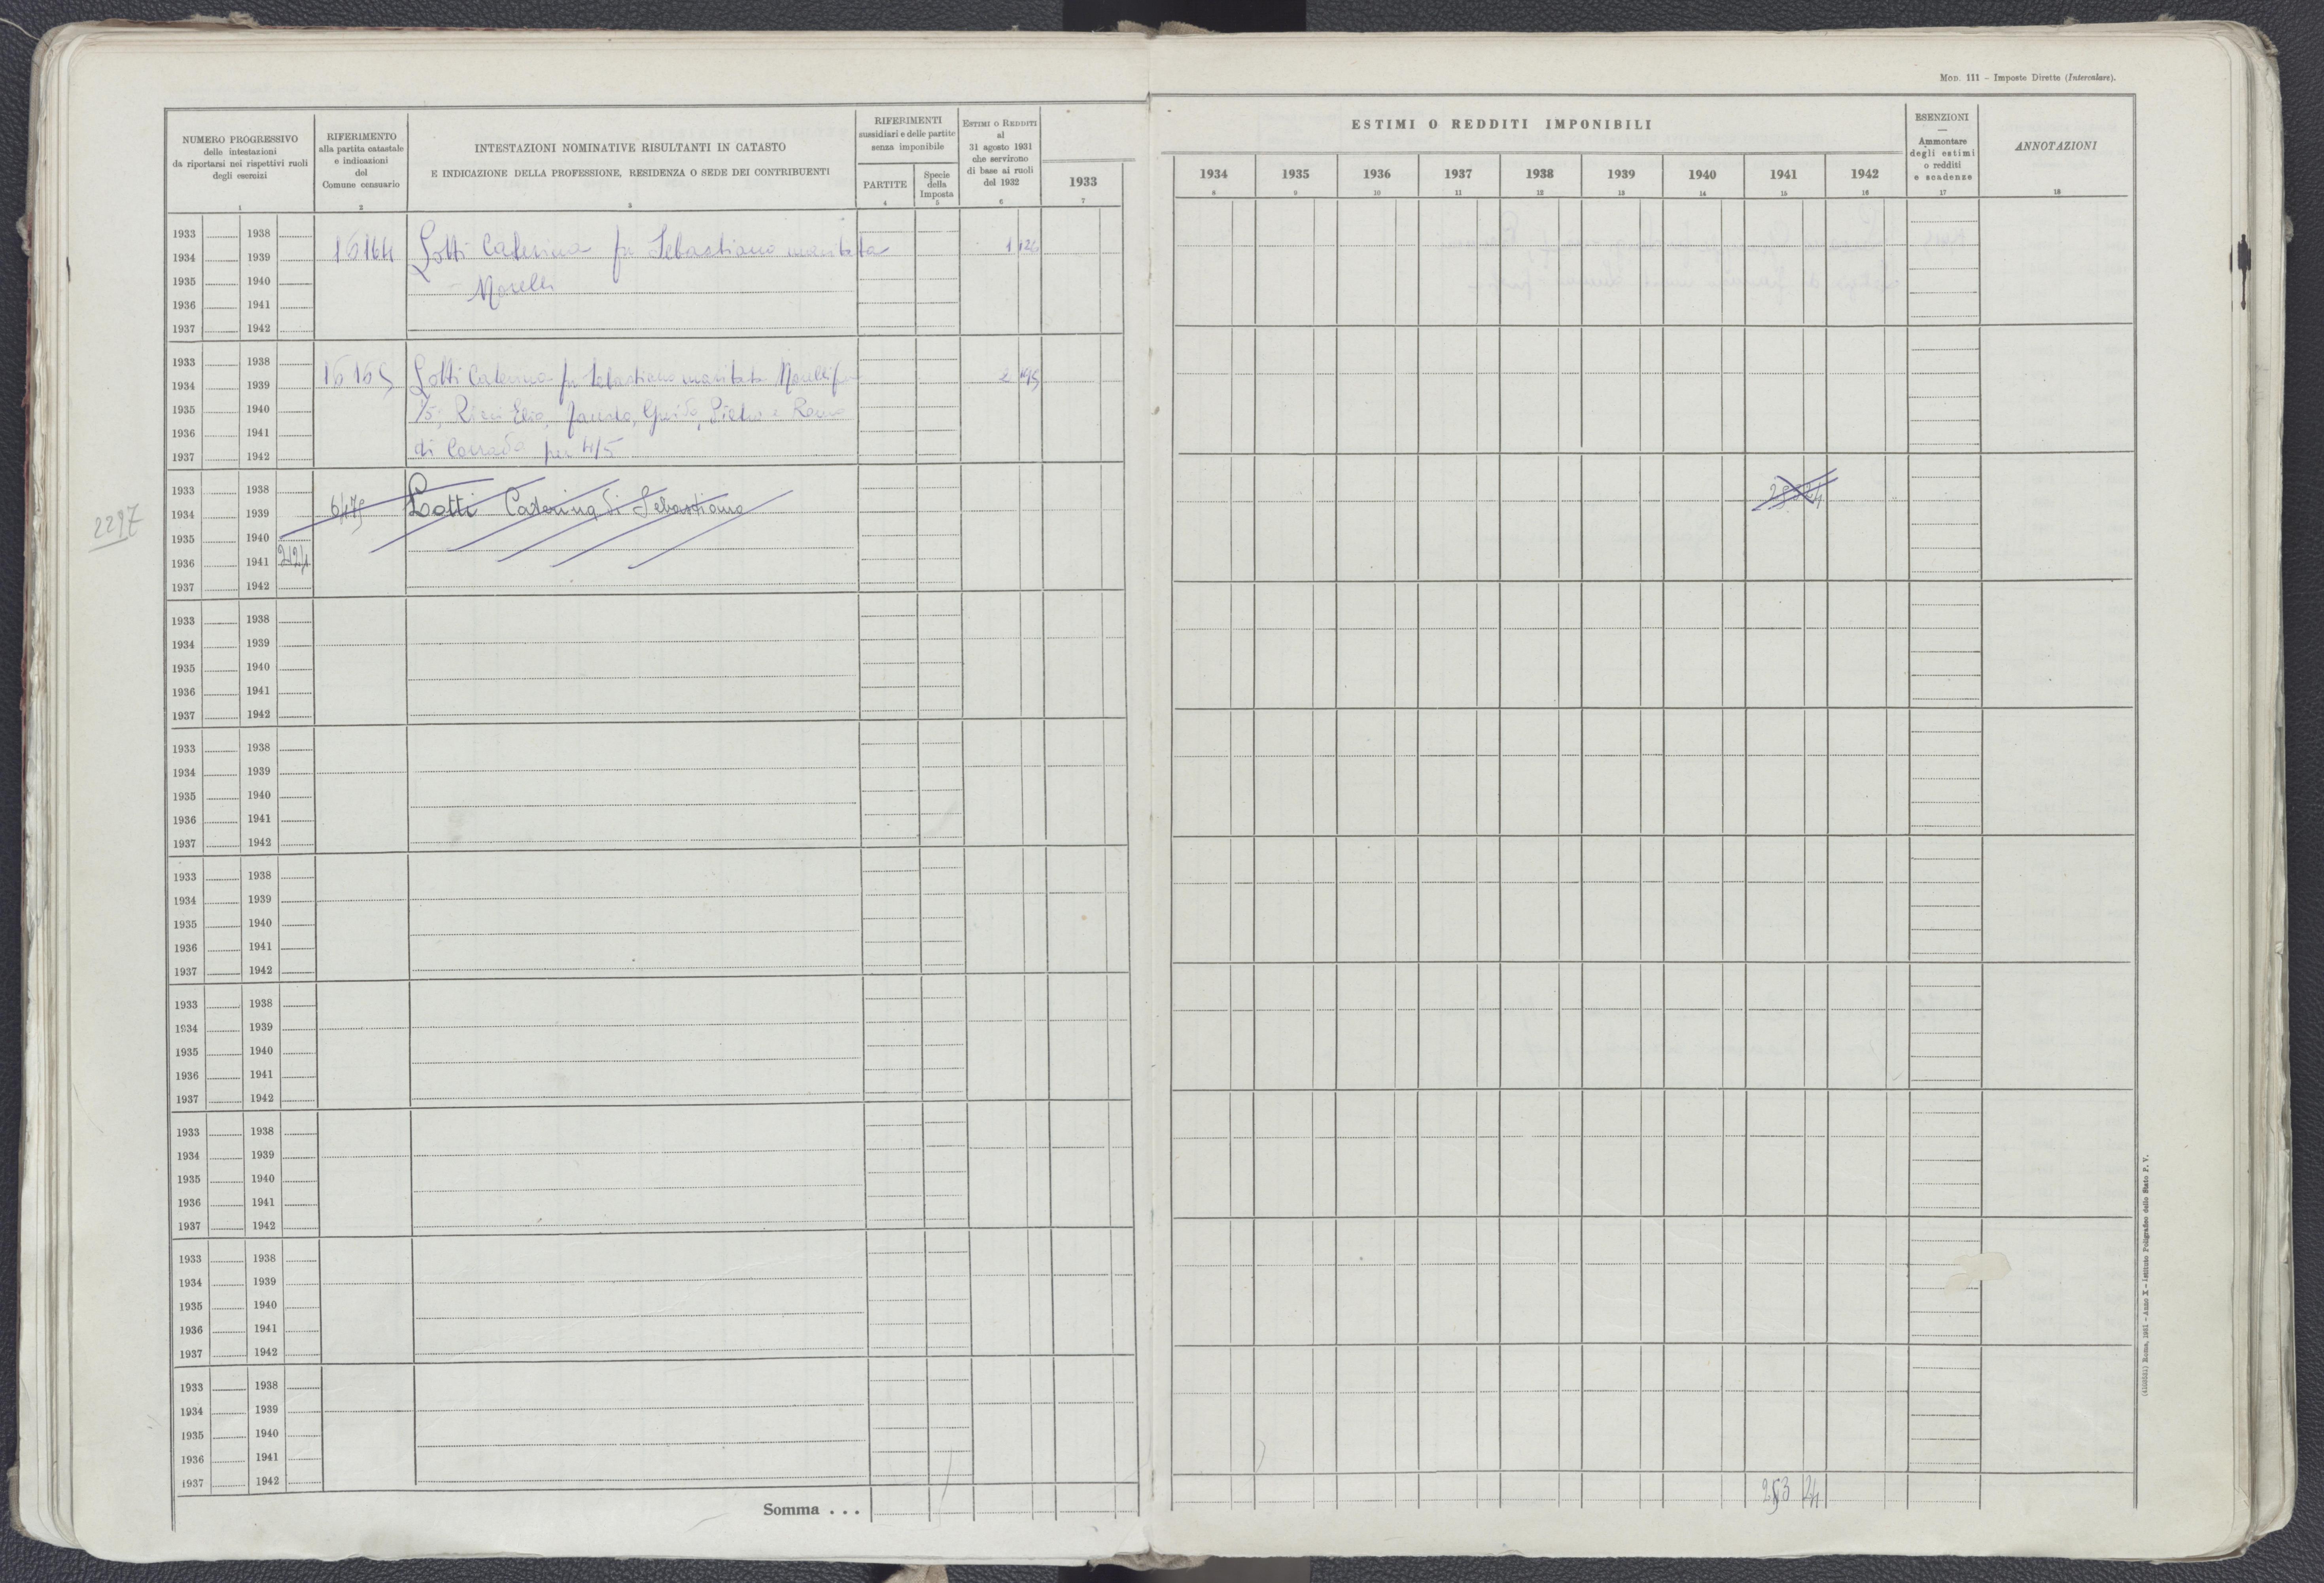 Mod. 111 – Imposte Dirette (Intercalare).
NUMERO PROGRESSIVO
delle intestazioni
da riportarsi nei rispettivi ruoli
degli esercizi
1
RIFERIMENTO
alla partita catastale
e indicazioni
del
Comune censuario
2
INTESTAZIONI NOMINATIVE RISULTANTI IN CATASTO
E INDICAZIONE DELLA PROFESSIONE, RESIDENZA O SEDE DEI CONTRIBUENTI
3
RIFERIMENTI
sussidiari e delle partite
senza imponibile
PARTITE
4
Specie
della
Imposta
5
Estimi o Redditi
al
31 agosto 1931
che servirono
di base ai ruoli
del 1932
6
1933
7
ESTIMI O REDDITI IMPONIBILI
1934 1935 1936 1937 1938 1939 1940 1941 1942
8 9 10 11 12 13 14 15 16
ESENZIONI
—
Ammontare
degli estimi
o redditi
e scadenze
17
ANNOTAZIONI
18
1933 1938
1934 1939 16164 Lotti Caterina fu Sebastiano maritata 1 26
1935 1940 Morelli
1936 1941
1937 1942
1933 1938
1934 1939 16165 Lotti Caterina fu Sebastiano maritata Morelli per
1935 1940 1/5; Elio, Guido, Pietro e
1936 1941
1937 1942 di Corrado per 4/5
1933 1938
1934 1939 6479 Lotti Caterina di Sebastiano
2297
1935 1940
1936 1941 2124
1937 1942
1933 1938
1934 1939
1935 1940
1936 1941
1937 1942
1933 1938
1934 1939
1935 1940
1936 1941
1937 1942
1933 1938
1934 1939
1935 1940
1936 1941
1937 1942
1933 1938
1934 1939
1935 1940
1936 1941
1937 1942
1933 1938
1934 1939
1935 1940
1936 1941
1937 1942
1933 1938
1934 1939
1935 1940
1936 1941
1937 1942
1933 1938
1934 1939
1935 1940
1936 1941
1937 1942
Somma . . . 253 24
Roma, 1931 – Anno X – Istituto Poligrafico dello Stato P. V.